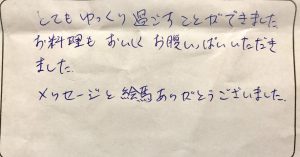 してもゆっくり過ごすことができました
お料理も おいしく お腹いっぱいいただき
ました.
メッセージと絵馬ありがとうございました.